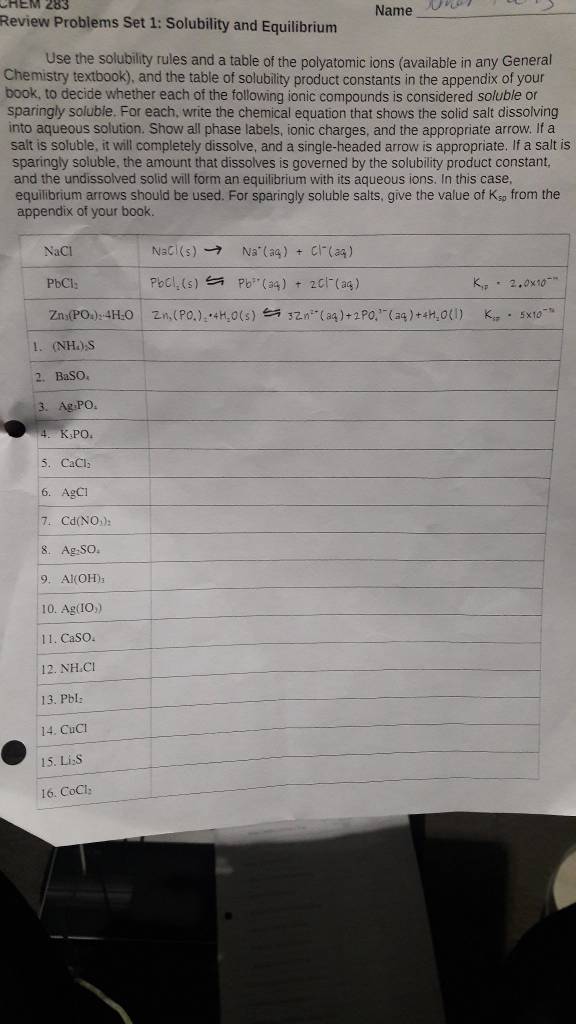 CHEM 283
Name
Review Problems Set 1: Solubility and Equilibrium
Use the solubility rules and a table of the polyatomic ions (available in any General
Chemistry textbook), and the table of solubility product constants in the appendix of your
book, to decide whether each of the following ionic compounds is considered soluble or
sparingly soluble. For each, write the chemical equation that shows the solid salt dissolving
into aqueous solution. Show all phase labels, ionic charges, and the appropriate arrow. If a
salt is soluble, it will completely dissolve, and a single-headed arrow is appropriate. If a salt is
sparingly soluble, the amount that dissolves is governed by the solubility product constant,
and the undissolved solid will form an equilibrium with its aqueous ions. In this case,
equilibrium arrows should be used. For sparingly soluble salts, give the value of Ksp from the
appendix of your book.
NaCl NaCl(s) → Na⁺(aq) + Cl⁻(aq)
PbCl₂ PbCl₂(s) ⇆ Pb²⁺(aq) + 2Cl⁻(aq) Ksp = 2.0x10
Zn₃(PO₄)₂·4H₂O Zn₃(PO₄)₂•4H₂O(s) ⇆ 3Zn²⁺(aq)+2PO₄³⁻(aq)+4H₂O(l) Ksp = 5x10
1. (NH₄)₂S
2. BaSO₄
3. Ag₃PO₄
4. K₃PO₄
5. CaCl₂
6. AgCl
7. Cd(NO₃)₂
8. Ag₂SO₄
9. Al(OH)₃
10. Ag(IO₃)
11. CaSO₄
12. NH₄Cl
13. PbI₂
14. CuCl
15. Li₂S
16. CoCl₂